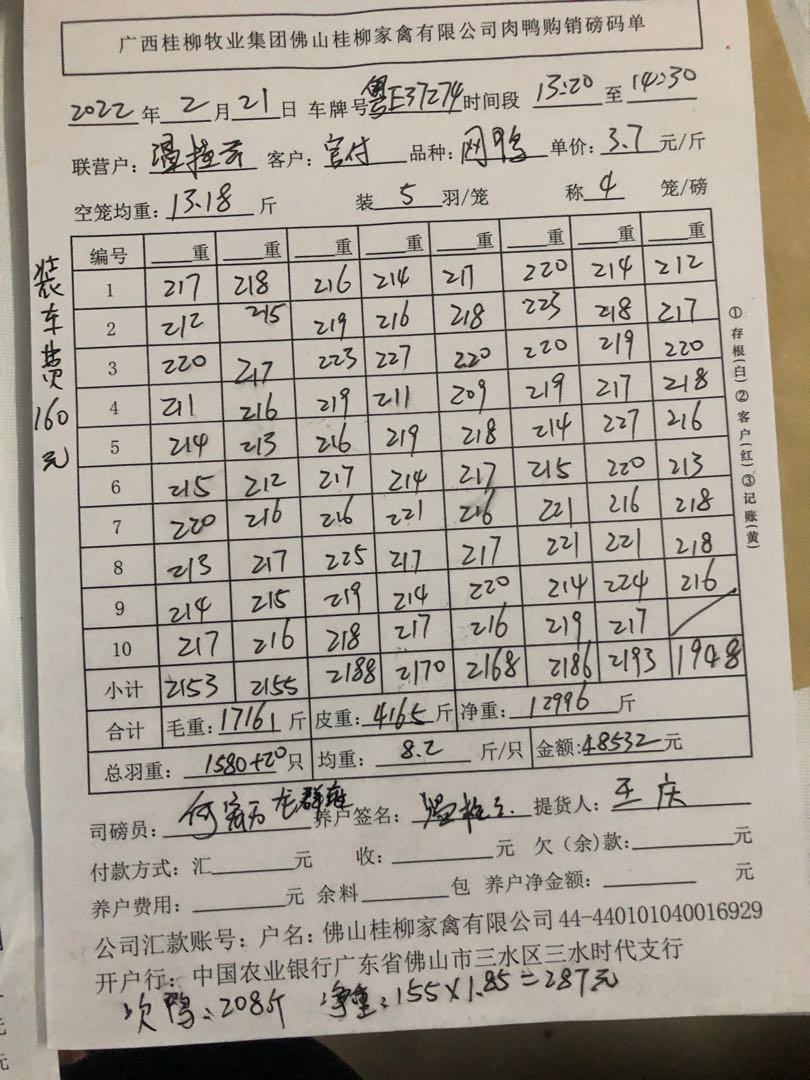 广西桂柳牧业集团佛山桂柳家禽有限公司肉鸭购销磅码单
2022年2月21日 车牌号粤E37274时间段 13:20至14:30
联营户： 客户：官付 品种：网鸭 单价：3.7元/斤
空笼均重：13.18斤 装5羽/笼 称4笼/磅
编号 重 重 重 重 重 重 重 重
1 217 218 216 214 217 220 214 212
2 212 215 219 216 218 223 218 217
3 220 217 223 227 220 220 219 220
4 211 216 219 211 209 219 217 218
5 214 213 216 219 218 214 227 216
6 215 212 217 214 217 215 220 213
7 220 216 216 221 216 221 216 218
8 213 217 225 217 217 221 221 218
9 214 215 219 214 220 214 224 216
10 217 216 218 217 216 219 217
小计 2153 2155 2188 2170 2168 2186 2193 1948
合计 毛重：17161斤 皮重：4165斤 净重：12996斤
总羽重：1580+20只 均重：8.2斤/只 金额：48532元
司磅员： 养户签名： 提货人：王庆
付款方式：汇元 收：元 欠（余）款：元
养户费用：元 余料包 养户净金额：元
公司汇款账号：户名：佛山桂柳家禽有限公司44-440101040016929
开户行：中国农业银行广东省佛山市三水区三水时代支行
次鸭：208斤 净重：155×1.85=287元
装车费160元
①存根(白)②客户(红)③记账(黄)